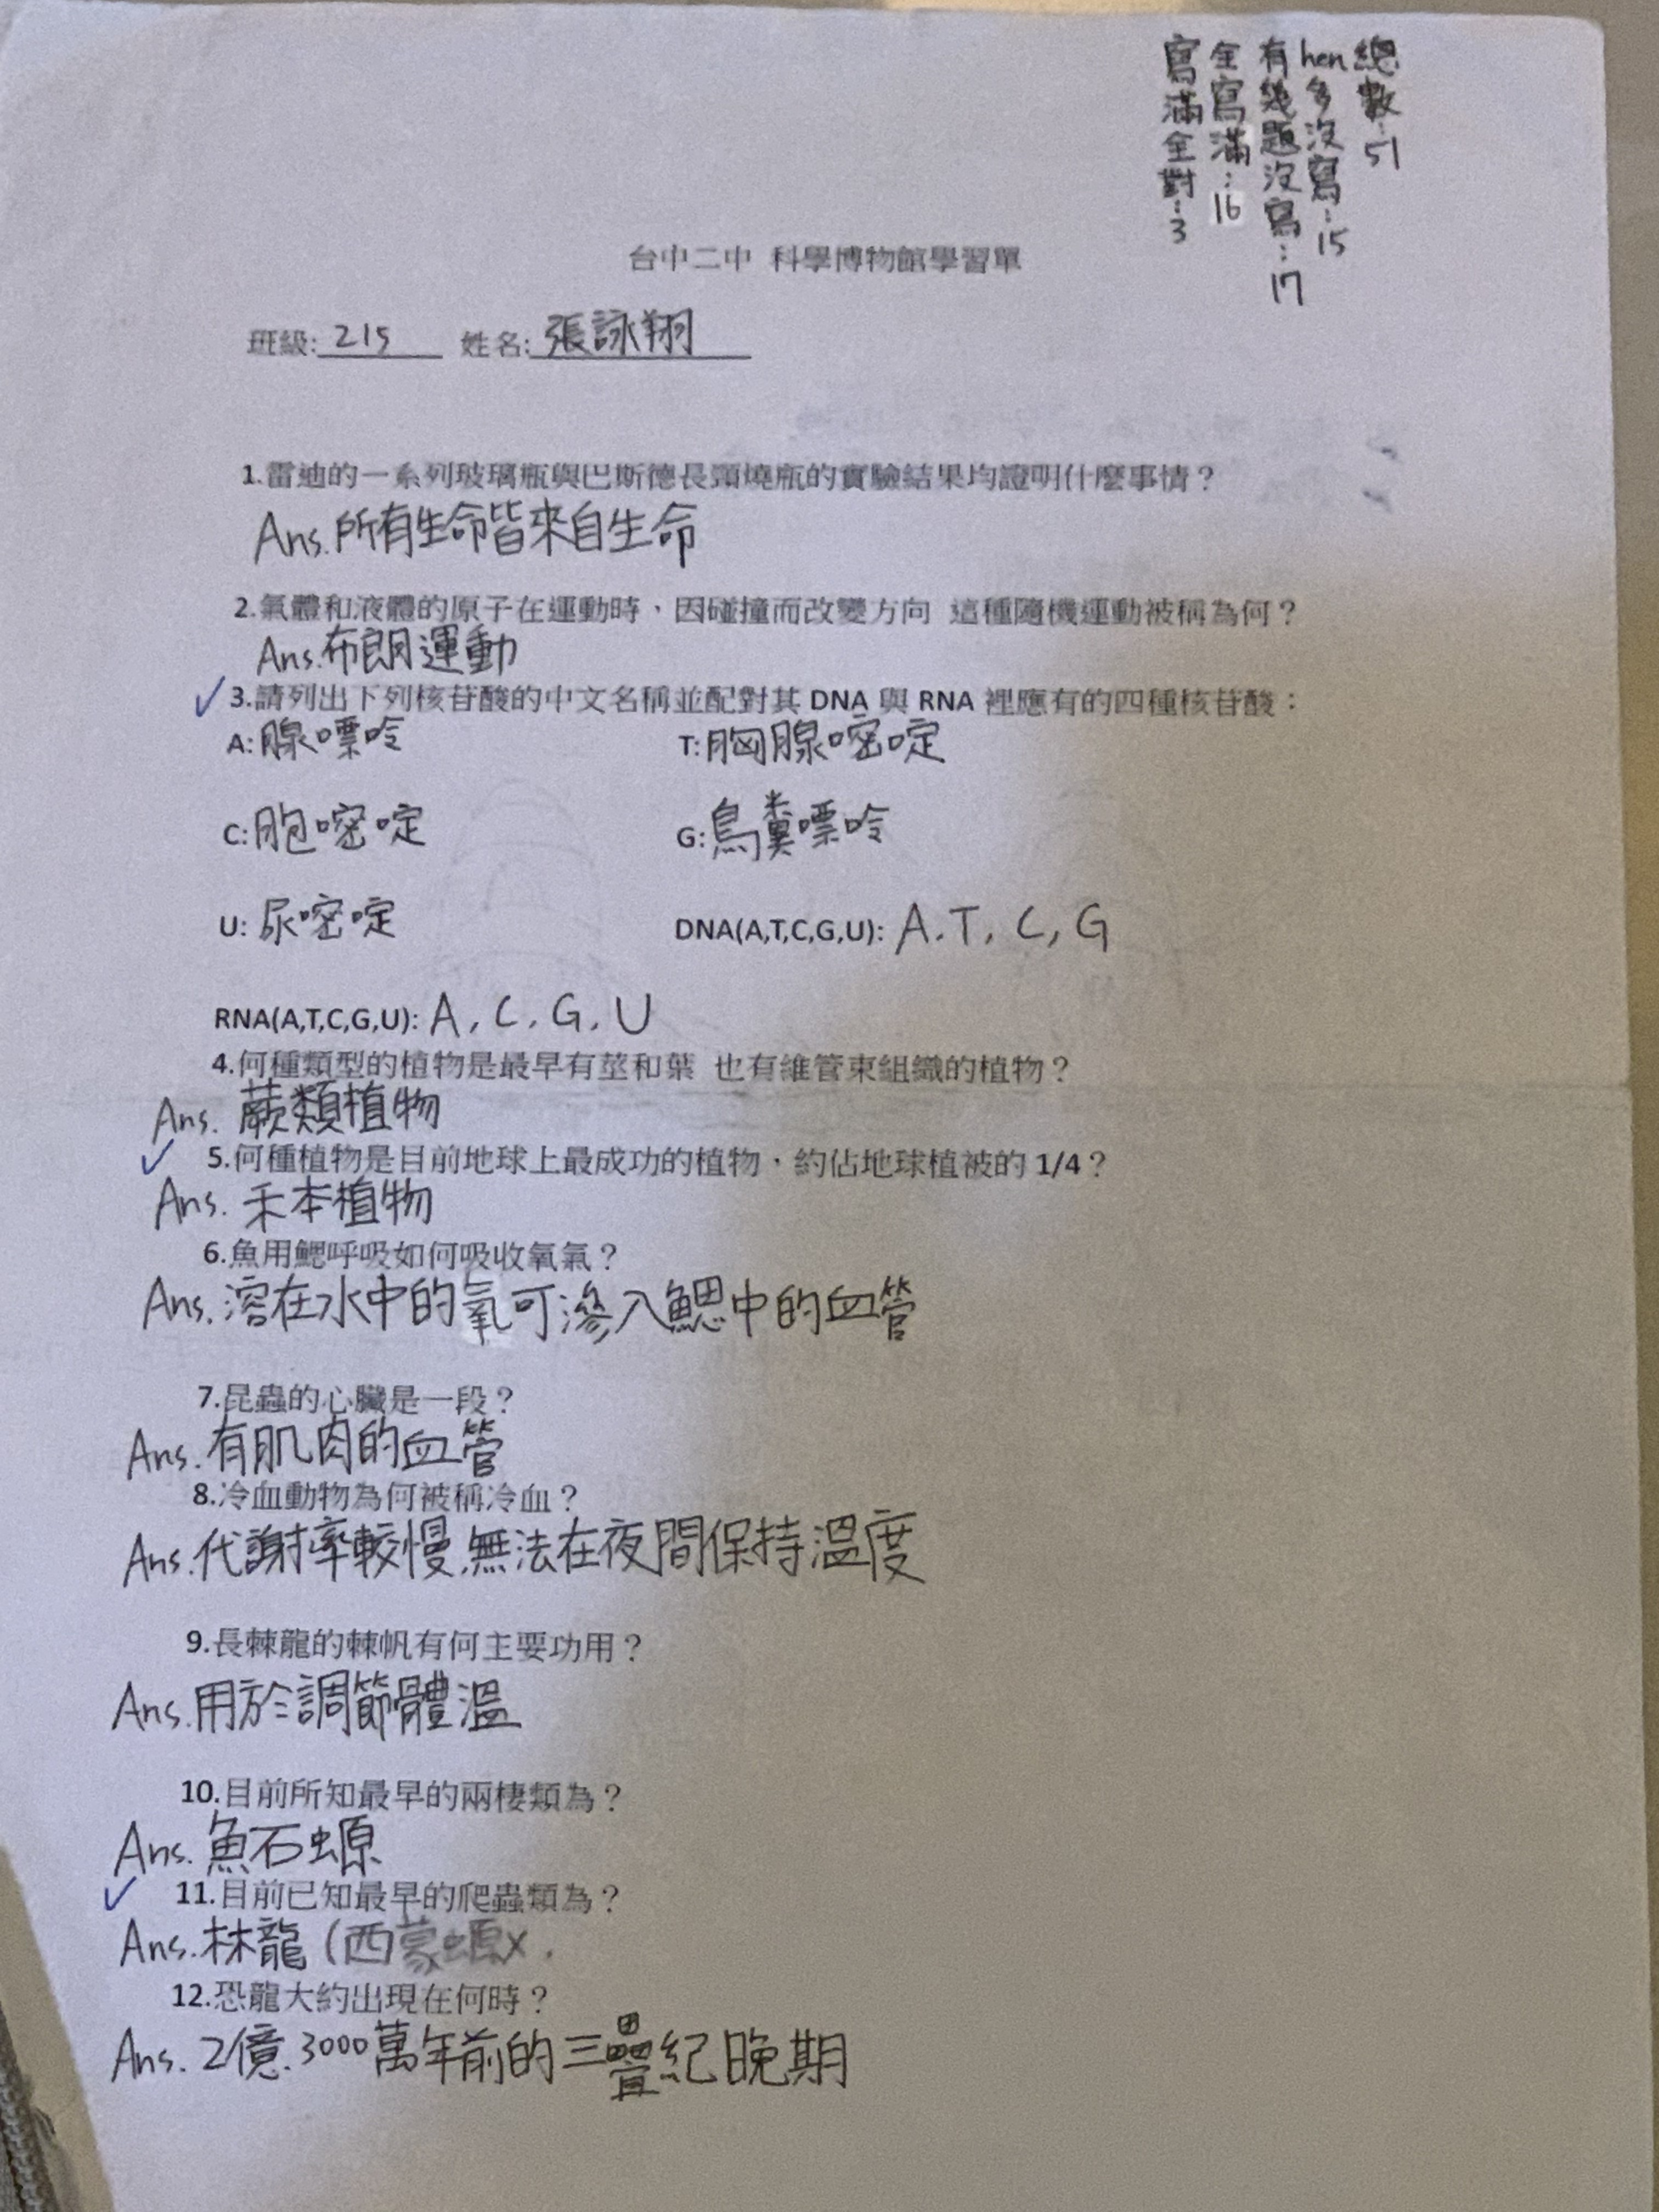 台中二中 科學博物館學習單
寫滿全對：3
全寫滿：16
有幾題沒寫：17
hen多沒寫：15
總數：51
班級：215 姓名：張詠翔
1.雷迪的一系列玻璃瓶與巴斯德長頸燒瓶的實驗結果均證明什麼事情？
Ans.所有生命皆來自生命
2.氣體和液體的原子在運動時、因碰撞而改變方向 這種隨機運動被稱為何？
Ans.布朗運動
✓3.請列出下列核苷酸的中文名稱並配對其 DNA 與 RNA 裡應有的四種核苷酸：
A:腺嘌呤 T:胸腺嘧啶
C:胞嘧啶 G:鳥糞嘌呤
U:尿嘧啶 DNA(A,T,C,G,U): A.T,C,G
RNA(A,T,C,G,U): A,C,G,U
4.何種類型的植物是最早有莖和葉 也有維管束組織的植物？
Ans.蕨類植物
✓5.何種植物是目前地球上最成功的植物、約佔地球植被的 1/4？
Ans.禾本植物
6.魚用鰓呼吸如何吸收氧氣？
Ans.溶在水中的氧可滲入鰓中的血管
7.昆蟲的心臟是一段？
Ans.有肌肉的血管
8.冷血動物為何被稱冷血？
Ans.代謝率較慢無法在夜間保持溫度
9.長棘龍的棘帆有何主要功用？
Ans.用於調節體溫
10.目前所知最早的兩棲類為？
Ans.魚石螈
✓11.目前已知最早的爬蟲類為？
Ans.林龍(西蒙螈x,
12.恐龍大約出現在何時？
Ans.2億3000萬年前的三疊紀晚期